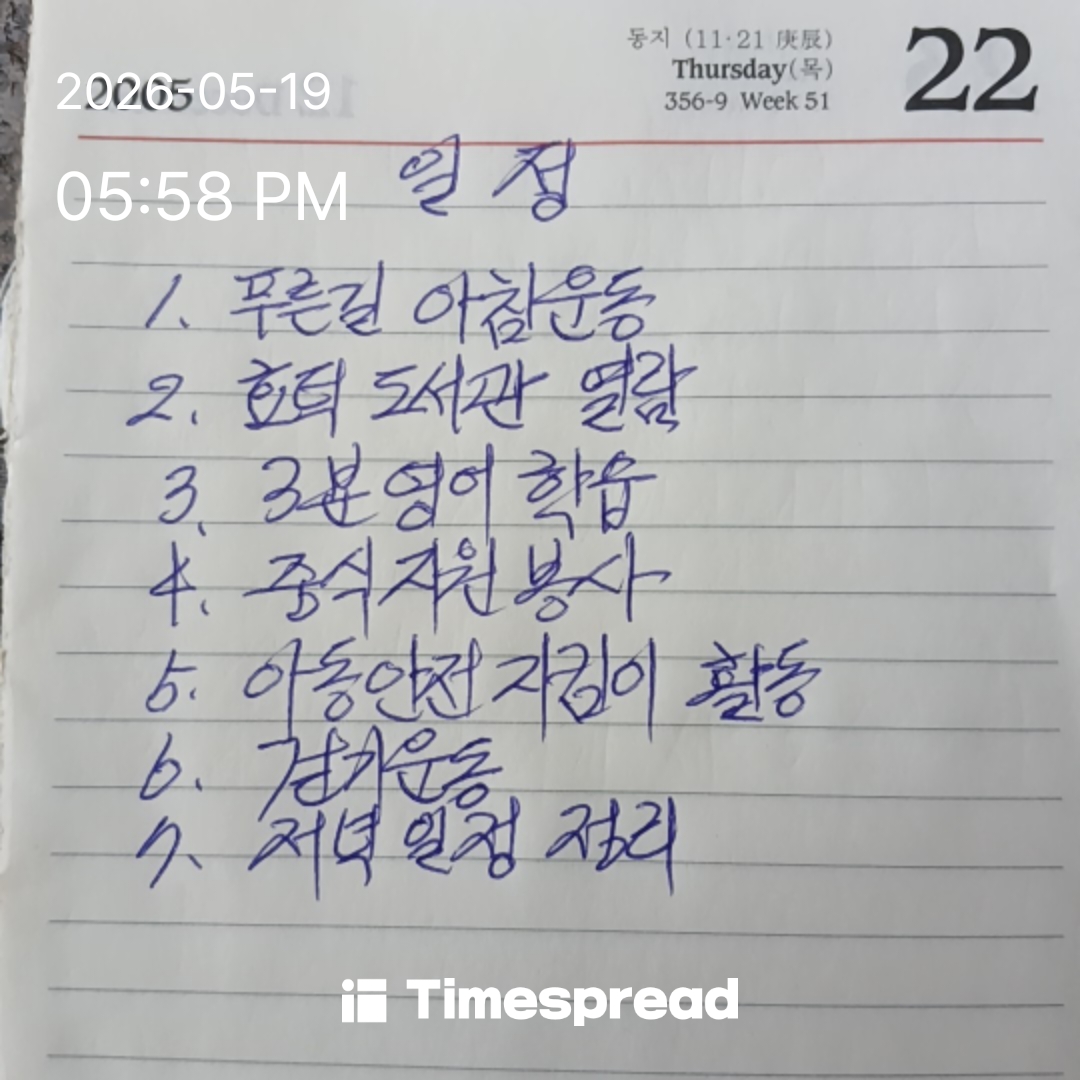 동지 (11·21 庚辰)
Thursday(목)
356-9 Week 51
22
2026-05-19
05:58 PM
일정
1. 푸른길 아침운동
2. 효덕 도서관 열람
3. 3분 영어 학습
4. 중식 자원 봉사
5. 아동안전 지킴이 활동
6. 걷기운동
7. 저녁 일정 정리
Timespread